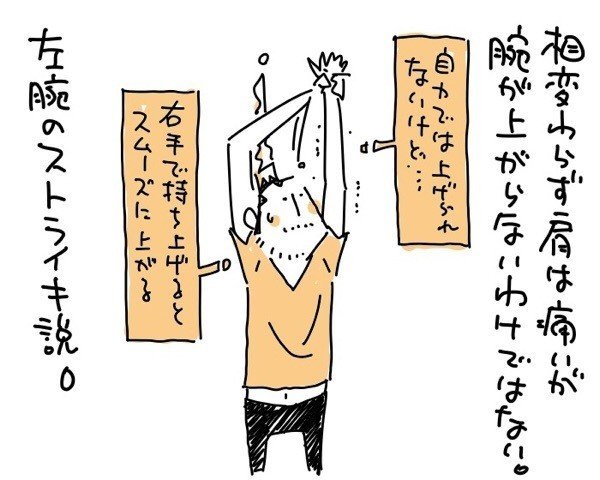 相変わらず肩は痛いが
腕が上がらないわけではない。
自力では上げられ
ないけど…
右手で持ち上げると
スムーズに上がる
左腕のストライキ説。